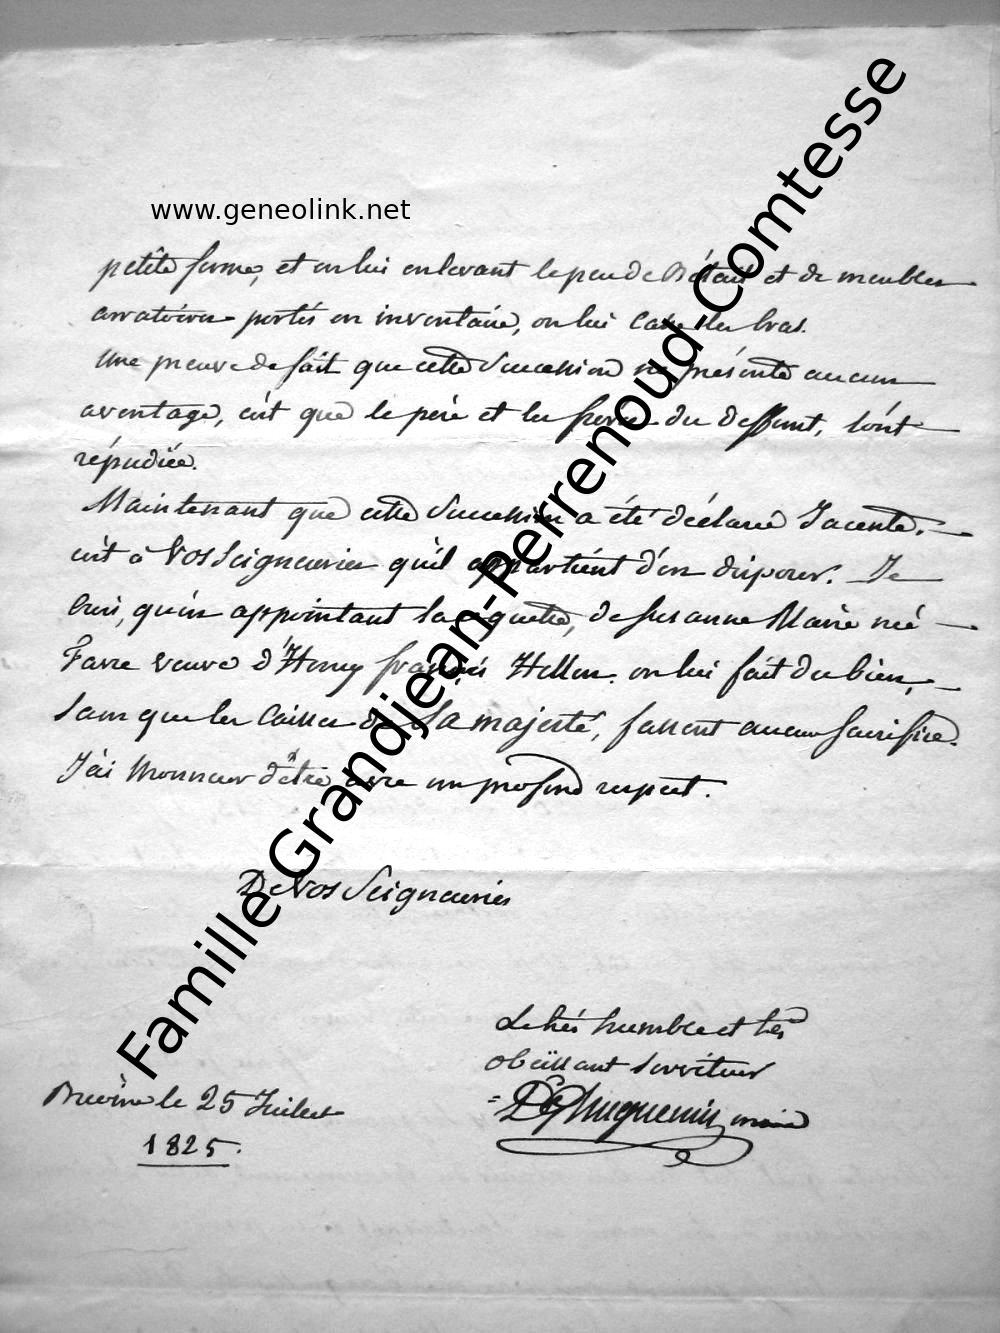 www.geneolink.net
Famille Grandjean-Perrenoud-Comtesse
petite ferme, et en lui enlevant le peu de Bétail et de meubles
arratoires portés en inventaire, on lui casse les bras.
Une preuve de fait que cette Succession ne présente aucun
avantage, c'est que le père et les freres du deffunt, l'ont
répudiée.
Maintenant que cette Succession a été déclarée Jacente,
c'est à Vos Seigneuries qu'il appartient d'en disposer. Je
crois, qu'en appointant la requette, de Susanne Marie née
Favre veuve d'Henry françois on lui fait du bien,
sans que les Caisses de Sa majesté, fassent aucun sacrifice.
J'ai l'honneur d'être avec un profond respect.
De Vos Seigneuries
Le très humble et très
obéissant serviteur
Huguenin maire
Brevine le 25 Juillet
1825.